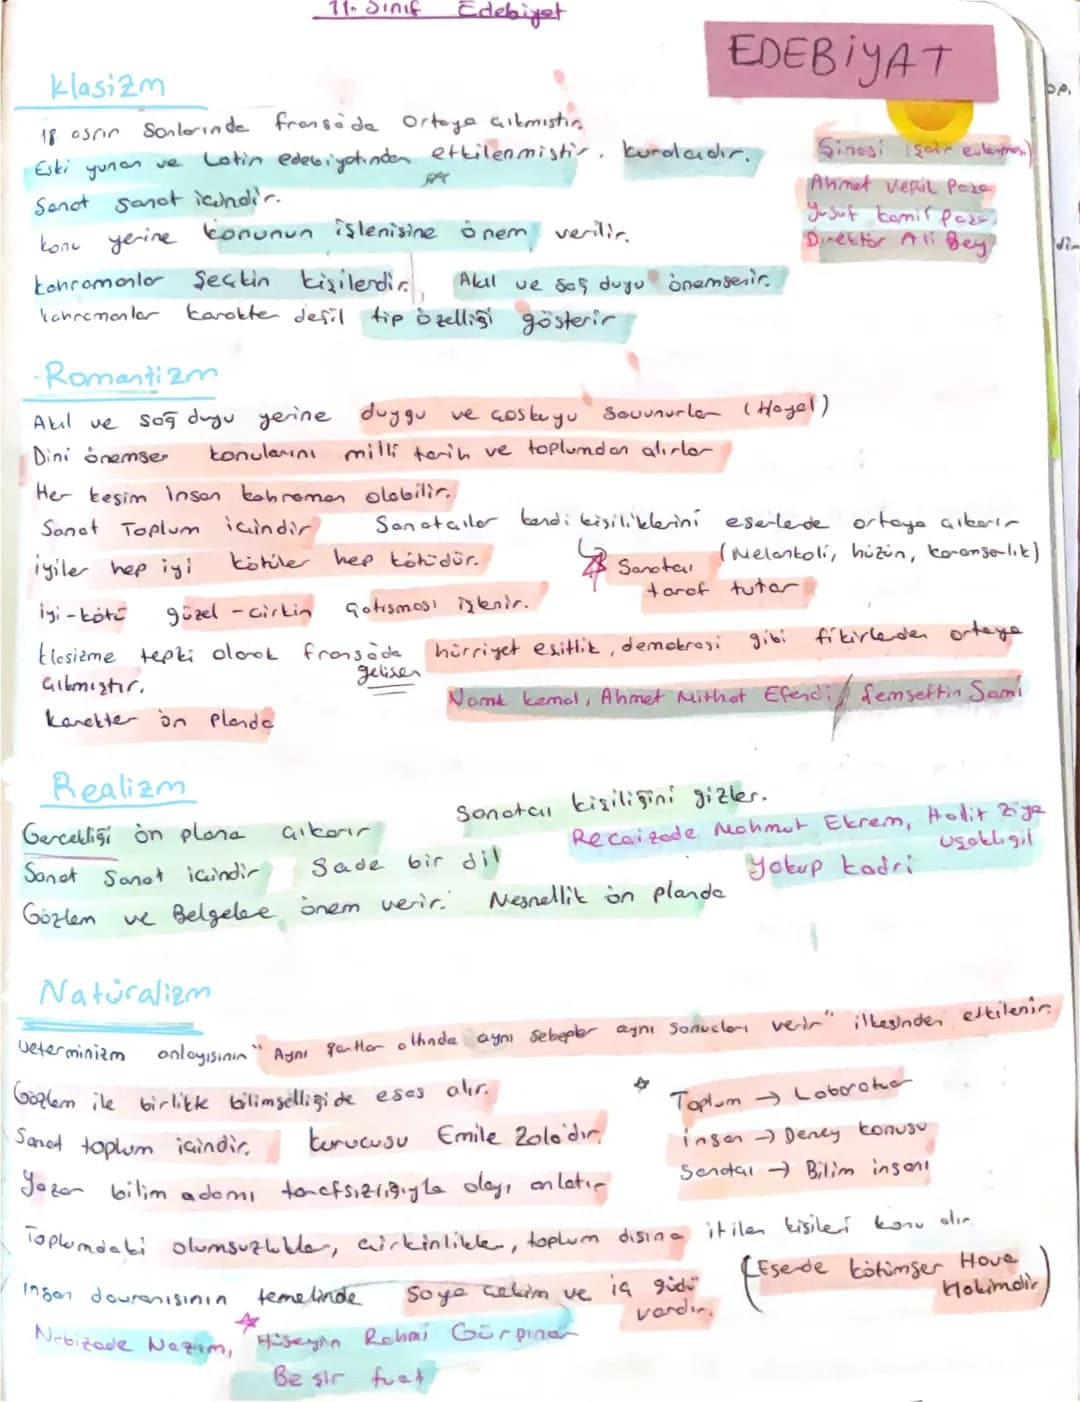 11. Sınıf Edebiyat
EDEBİYAT
Klasizm
18 asrın Sonlarında fransa'da Ortaya çıkmıştır.
Eski yunan ve Latin edebiyatından etkilenmiştir. kuralcıdır.
Sanat sanat içindir.
konu yerine konunun işlenişine önem verilir.
kahramanlar Seçkin kişilerdir. Akıl ve sağ duyu önemsenir.
kahramanlar karakter değil tip özelliği gösterir
Şinasi (şair evlenmesi)
Ahmet Vefik Paşa
Yusuf kamil paşa,
Direktör Ali Bey
Romantizm
Akıl ve sağ duyu yerine duygu ve coşkuyu savunurlar (Hayal)
Dini önemser konularını milli tarih ve toplumdan alırlar
Her kesim insan kahraman olabilir.
Sanat Toplum içindir Sanatcılar kendi kişiliklerini eserlerde ortaya çıkarır
(Melankoli, hüzün, karamsarlık)
iyiler hep iyi kötüler hep kötüdür. Sanatcı
taraf tutar
iyi-kötü güzel-çirkin çatışması işlenir.
klasizme tepki olarak fransa'da gelişen hürriyet eşitlik, demokrasi gibi fikirlerden ortaya
çıkmıştır.
Namık kemal, Ahmet Mithat Efendi / Şemsettin Sami
karakter ön planda
Realizm
Sanatcı kişiliğini gizler.
Gerçekliği ön plana çıkarır
Recaizade Mahmut Ekrem, Halit Ziya
Uşaklıgil
Sanat Sanat içindir Sade bir dil
Yakup kadri
Gözlem ve Belgelere önem verir. Nesnellik ön planda
Natüralizm
Determinizm anlayışının "Aynı şartlar altında aynı sebepler aynı sonuçları verir" ilkesinden etkilenir.
Gözlem ile birlikte bilimselliği de esas alır.
Toplum → Laboratuar
Sanat toplum içindir. kurucusu Emile Zola'dır.
insan → Deney konusu
Sanatçı → Bilim insanı
Yazar bilim adamı tarafsızlığıyla olayı anlatır
Toplumdaki olumsuzluklar, çirkinlikler, toplum dışına itilen kişileri konu alır.
(Eserde kötümser Hava
Hakimdir)
insan davranışının temelinde Soya çekim ve iç güdü
vardır.
Nabizade Nazım, Hüseyin Rahmi Gürpınar
Beşir fuat